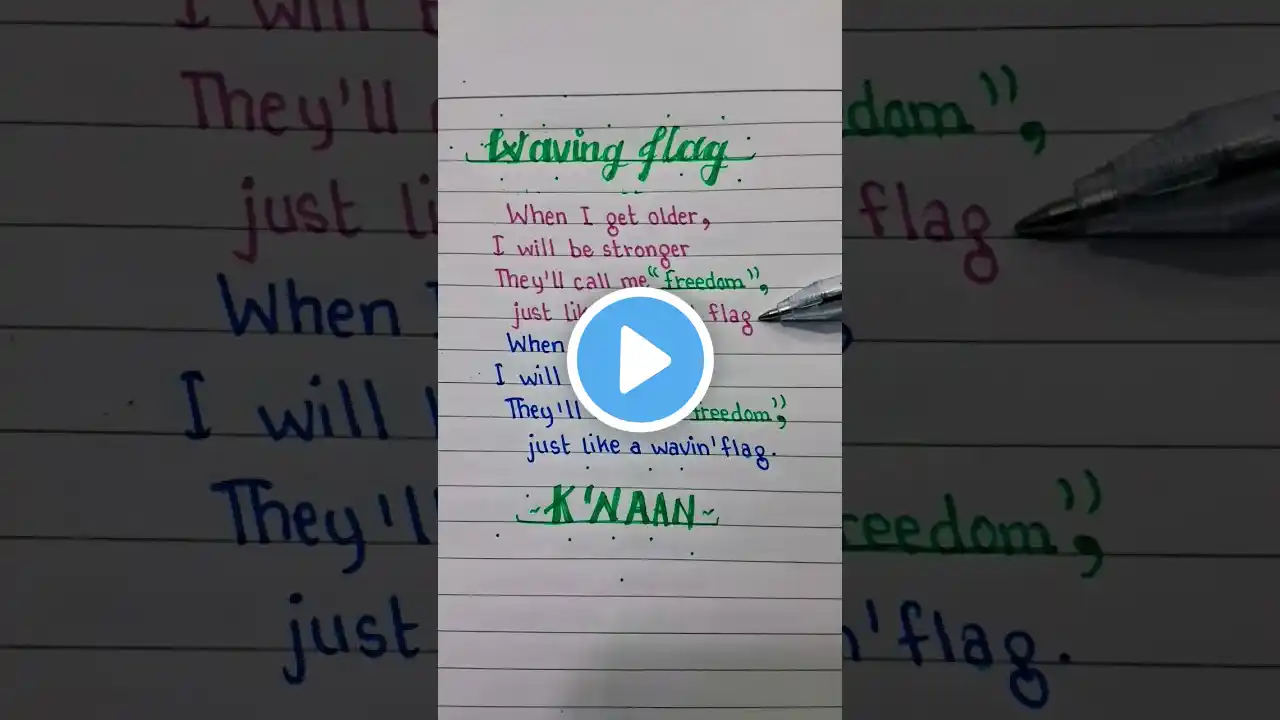 Waving flag
When I get older,
I will be stronger
They'll call me "freedom",
just flag
When
I will
They'll freedom",
just like a wavin' flag.
~K'NAAN~